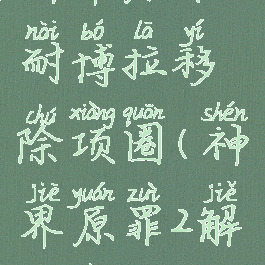 nài bó lā yí
耐博拉移
chú xiàng quān shén
除项圈(神
jiè yuán zuì jiě
界原罪2解